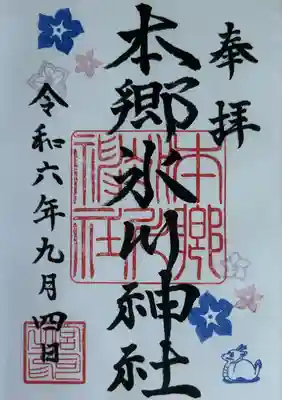 奉拝
本郷氷川神社
本郷氷川神社
令和六年九月四日